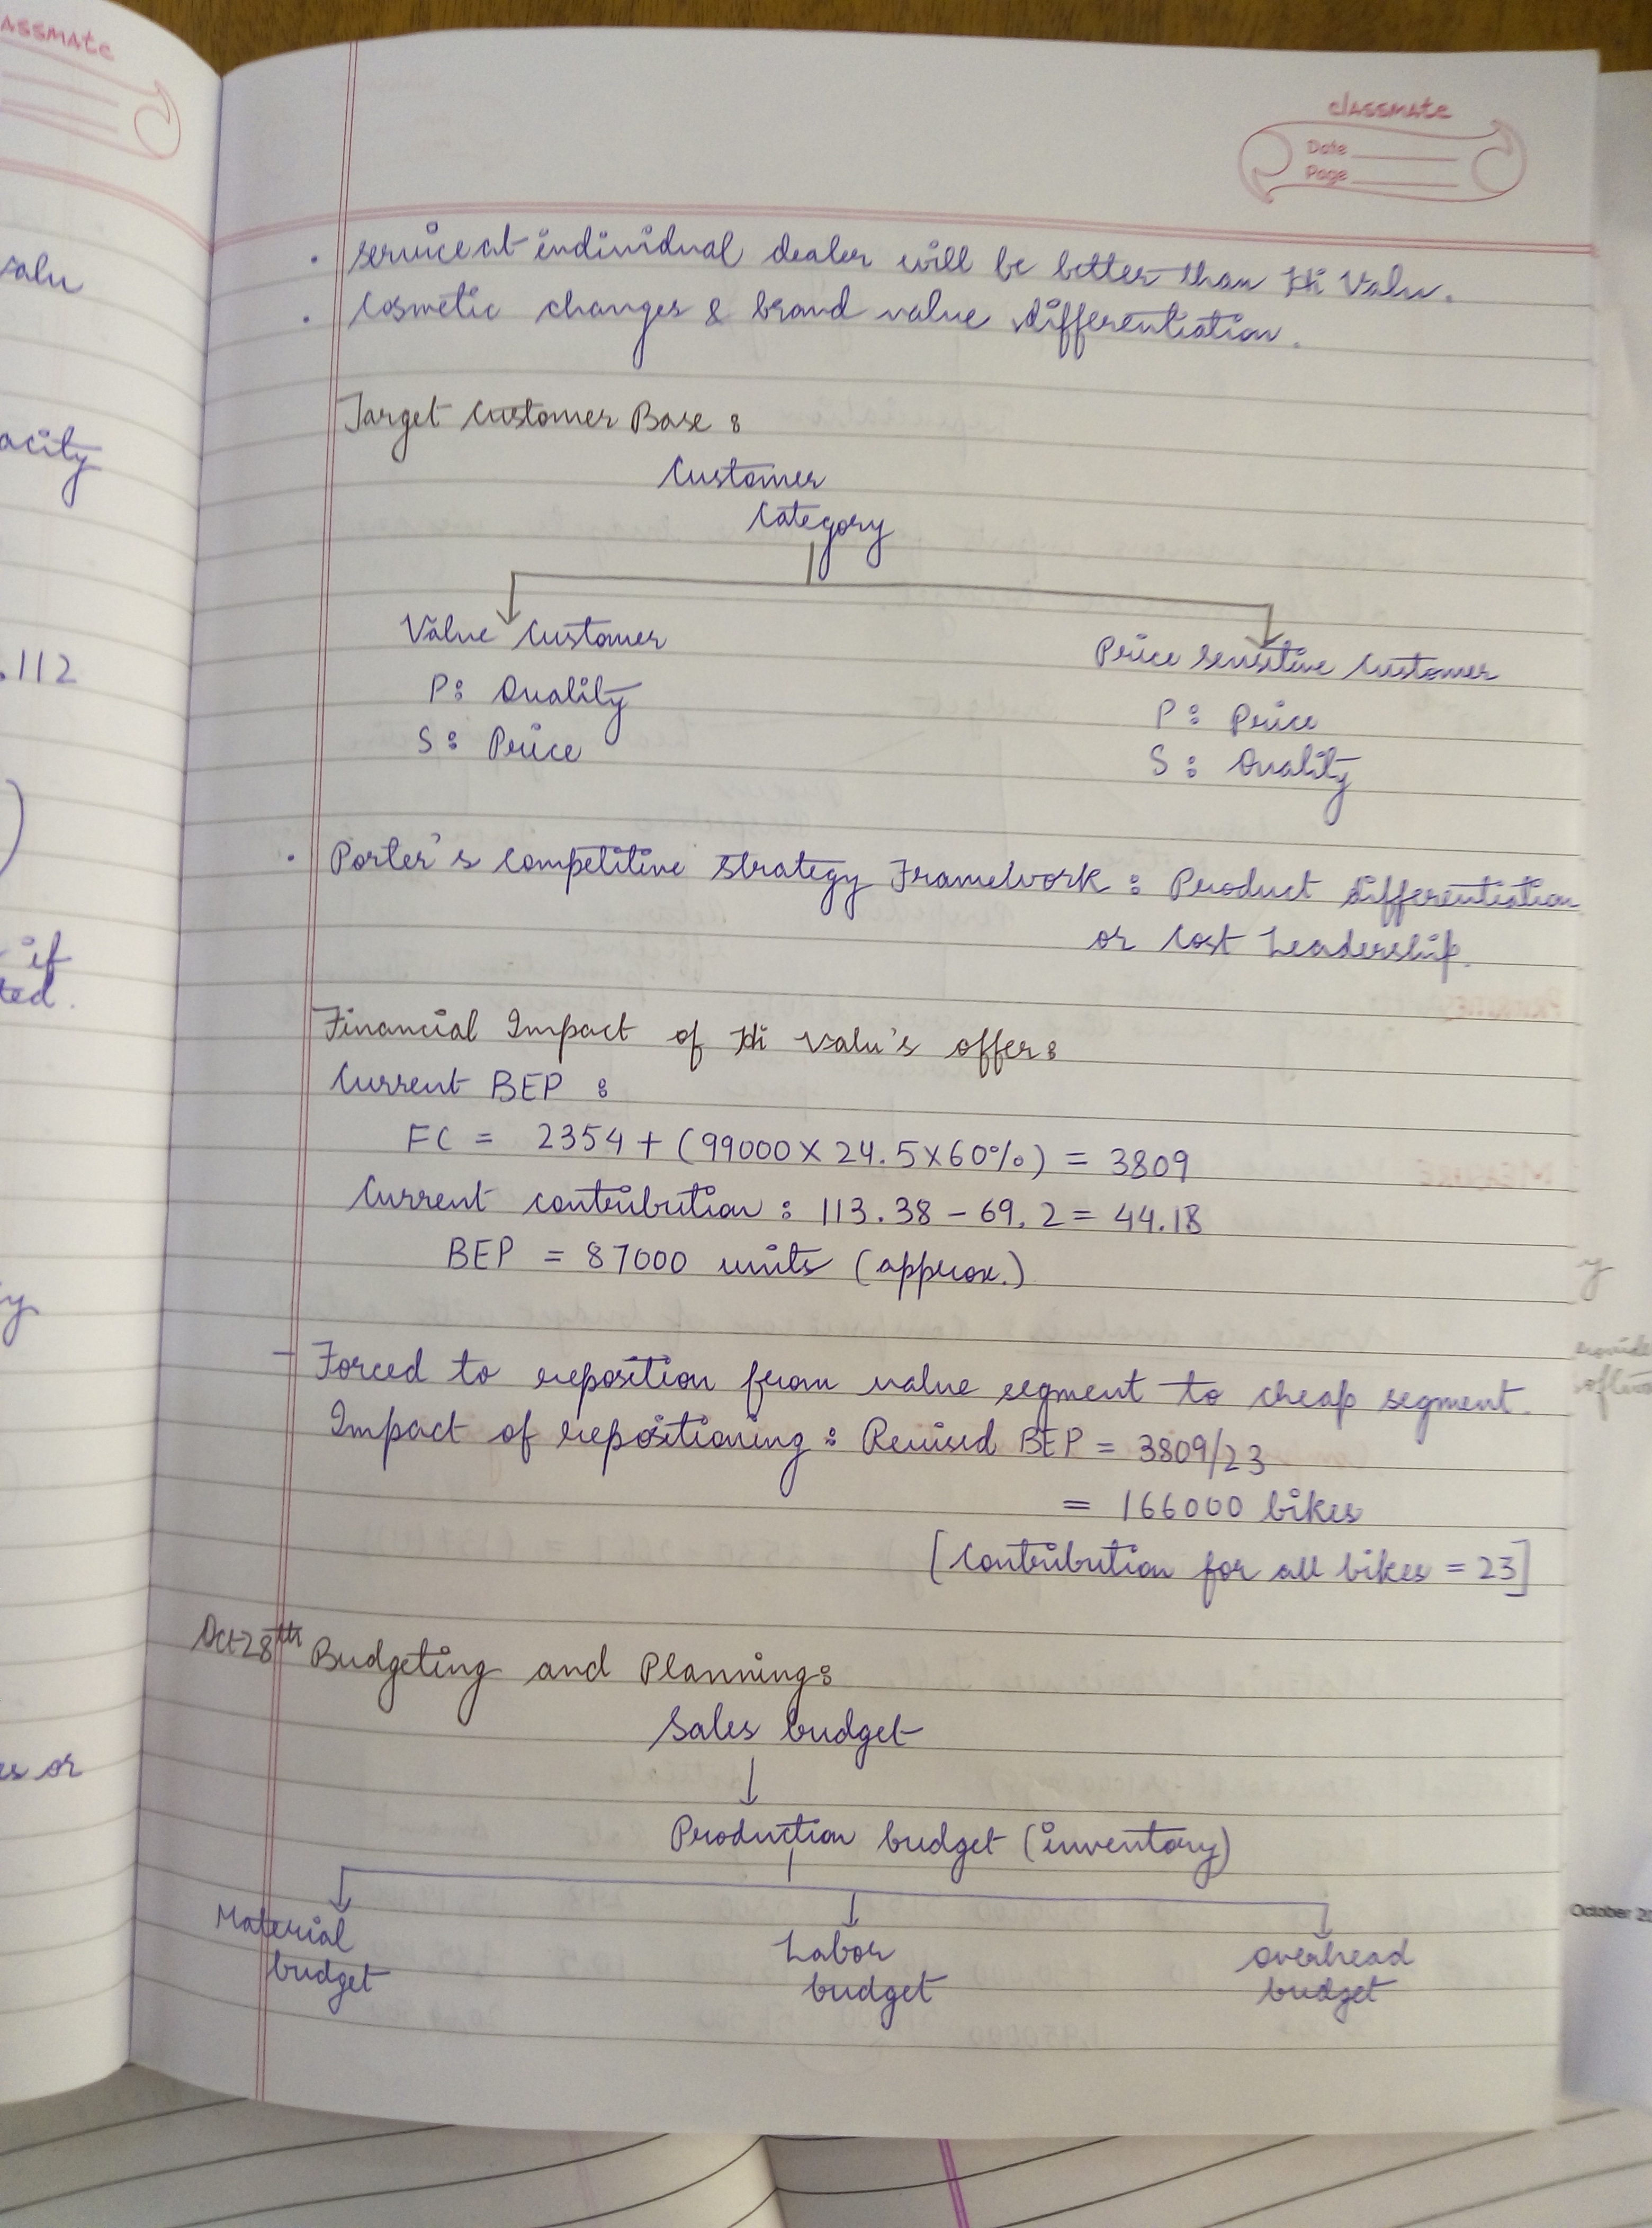 ASSMATE
valu
acity
.112
)
if
ted.
y
es or
classmate
Date
Page
. service at individual dealer will be better than Hi Valu.
. Cosmetic changes & brand value differentiation.
Target Customer Base :
Customer
Category
Value Customer
P: Quality
S: Price
Price sensitive Customer
P: Price
S: Quality
. Porter's Competitive Strategy Framework : Product differentiation
or Cost Leadership.
Financial Impact of Hi Valu's offer:
Current BEP :
FC = 2354 + (99000 X 24.5 X 60%) = 3809
Current contribution : 113.38 - 69.2 = 44.18
BEP = 87000 units (approx.)
- Forced to reposition from value segment to cheap segment.
Impact of repositioning : Revised BEP = 3809/23
= 166000 bikes
[Contribution for all bikes = 23]
Oct 28th Budgeting and Planning:
Sales budget
Production budget (inventory)
Material
budget
Labor
budget
Overhead
budget
October 20